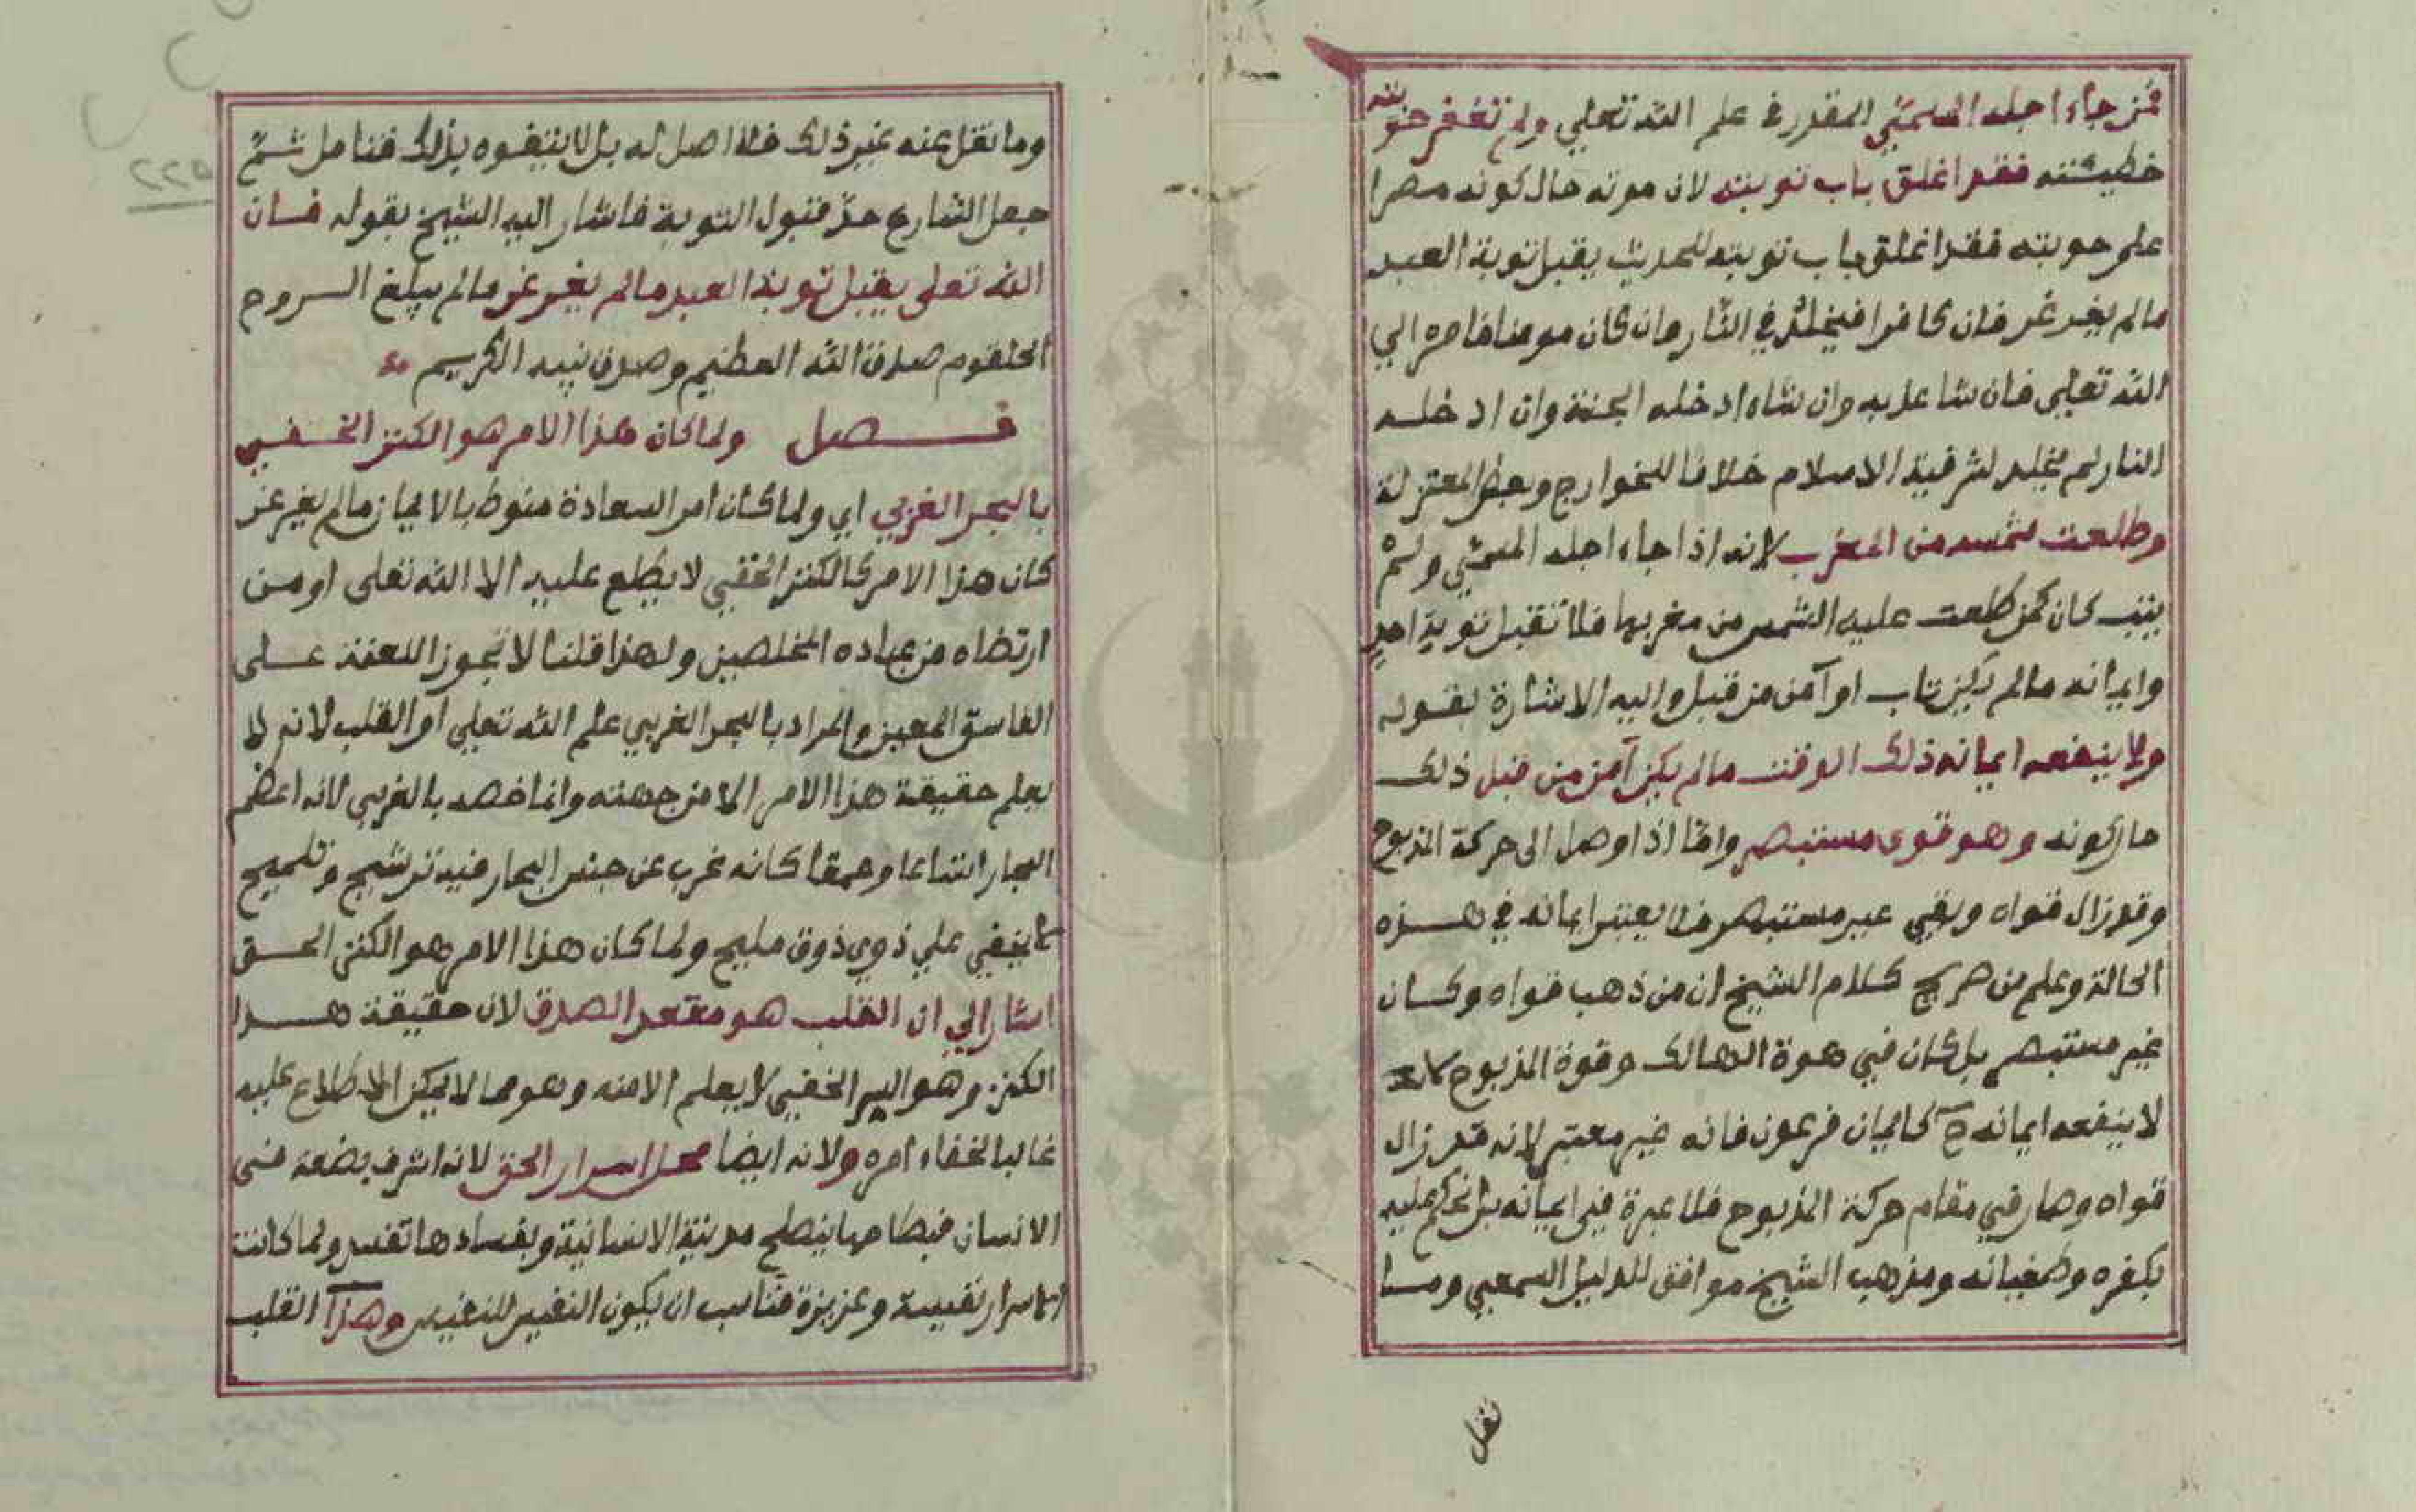 فمن جاء اجله المسمّي المقدر في علم الله تعلي ولم تغفر حوبته
خطيئته فقد اغلق باب توبته لان موته حال كونه مصرا
علي حوبته فقد اغلق باب توبته للحديث يقبل توبة العبد
مالم يغرغر فان كافرا فيخلّد في النّار وان كان مومنا فامره الي
الله تعلي فان شا عذبه وان شاء ادخله الجنة وان ادخله
النار لم يخلد لشرفية الاسلام خلافا للخوارج وبعض المعتزلة
وطلعت شمسه من المغرب لانه اذا جاء اجله المسمّي ولم
يتب كان كمن طلعت عليه الشمس من مغربها فلا تقبل توبة احد
وايمانه مالم يكن تاب او آمن من قبل واليه الاشارة بقوله
ولا ينفعه ايمانه ذلك الوقت مالم يكن آمن من قبل ذلك
حال كونه وهو قوي مستبصر وامّا اذا وصل الى حركة المذبوح
وقد زال قواه وبقي غير مستبصر فلا يعتبر ايمانه في هذه
الحالة وعلم من صريح كلام الشيخ ان من ذهب قواه وكان
غير مستبصر بل كان في هوة الهالك وقوة المذبوح
لا ينفعه ايمانه ح كايمان فرعون فانه غير معتبر لانه قد زال
قواه وصار في مقام حركة المذبوح فلا عبرة في ايمانه بل نحكم عليه
بكفره وطغيانه ومذهب الشيخ موافق للدليل السمعي وما
نقل
وما نقل عنه غير ذلك فلا اصل له بل لا يتفوه بذلك فتامل ثمّ
جعل الشارع حدّ قبول التوبة فاشار اليه الشيخ بقوله فان
الله تعلى يقبل توبة العبد مالم يغرغر مالم يبلغ الروح
الحلقوم صدق الله العظيم وصدق نبيه الكريم
فصل ولما كان هذا الامر هو الكنز الخفي
بالبحر الغربي اي ولما كان امر السعادة منوط بالايمان مالم يغرغر
كان هذا الامر كالكنز الخفي لا يطلع عليه الا الله تعلى او من
ارتضاه من عباده المخلصين ولهذا قلنا لا تجوز اللعنة على
الفاسق المعين والمراد بالبحر الغربي علم الله تعلي او القلب لانه لا
يعلم حقيقة هذا الامر الا من جهته وانما خصه بالغربي لانه اعظم
البحار اتساعا وعمقا كانه غرب عن جنس البحار فيه ترشيح وتلميح
كما يخفي علي ذوي ذوق مليح ولما كان هذا الامر هو الكنز الحق
اشار الي ان القلب هو مقعد الصدق لان حقيقة هذا
الكنز وهو السر الخفي لا يعلم الا منه وهو مما لا يمكن الاطلاع عليه
غالبا لخفاء امره ولانه ايضا محل اسرار الحق لانه اشرف بضعة في
الانسان فبصلاحها ينصلح مدينة الانسانية وبفسادها تفسد ولما كانت
الاسرار نفيسة وعزيزة فناسب ان يكون النفيس للنفيس وهذا القلب